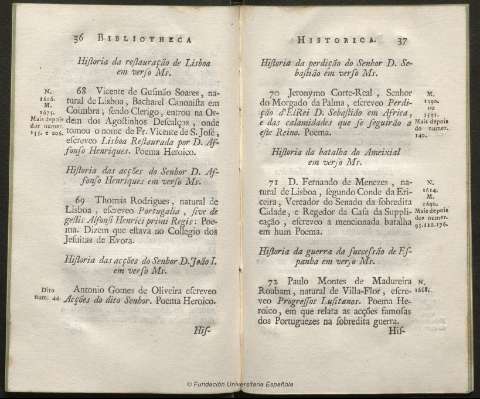 36 BIBLIOTHECA
Historia da restauração de Lisboa
em verso Ms.
N.
1616.
M.
1675.
Mais depois
dos numer.
135. e 206.
68 Vicente de Gusmão Soares, na-
tural de Lisboa, Bacharel Canonista em
Coimbra, sendo Clerigo, entrou na Or-
dem dos Agostinhos Descalços, onde
tomou o nome de Fr. Vicente de S. José,
escreveo Lisboa Restaurada por D. Af-
fonso Henriques. Poema Heroico.
Historia das acções do Senhor D. Af-
fonso Henriques em verso Ms.
69 Thomás Rodrigues, natural de
Lisboa, escreveo Portugalia, sive de
gestis Alfonsi Henrici primi Regis: Poe-
ma. Dizem que estava no Collegio dos
Jesuitas de Evora.
Historia das acções do Senhor D. João I.
em verso Ms.
Dito
num. 44
Antonio Gomes de Oliveira escreveo
Acções do dito Senhor. Poema Heroico.
His-
HISTORICA. 37
Historia da perdição do Senhor D. Se-
bastião em verso Ms.
70 Jeronymo Corte-Real, Senhor
do Morgado da Palma, escreveo Perdi-
ção d'ElRei D. Sebastião em Africa,
e das calamidades que se seguirão a
este Reino. Poema.
M.
1590.
ou
1591.
Mais depois
do numer.
140.
Historia da batalha do Ameixial
em verso Ms.
71 D. Fernando de Menezes, na-
tural de Lisboa, segundo Conde da Eri-
ceira, Vereador do Senado da sobredita
Cidade, e Regedor da Casa da Suppli-
cação, escreveo a mencionada batalha
em hum Poema.
N.
1614.
M.
1699.
Mais depois
dos numer.
95.128.176.
Historia da guerra da successão de Es-
panha em verso Ms.
72 Paulo Montes de Madureira
Roubam, natural de Villa-Flor, escre-
veo Progressos Lusitanos. Poema He-
roico, em que relata as acções famosas
dos Portuguezes na sobredita guerra.
N.
1685.
His-
© Fundación Universitaria Española